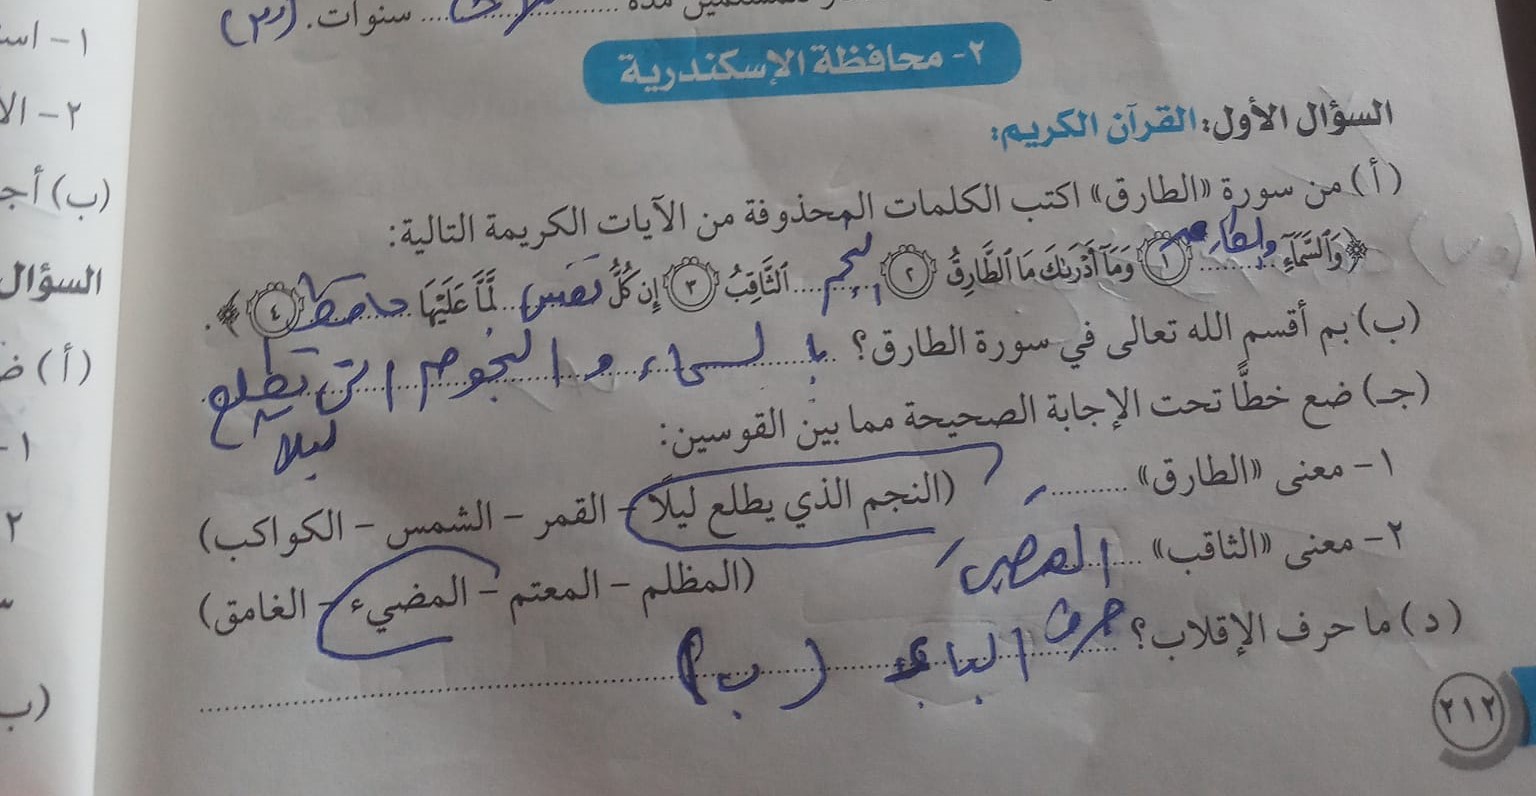 سنوات. (٣)
٢- محافظة الإسكندرية
السؤال الأول: القرآن الكريم:
(أ) من سورة «الطارق» اكتب الكلمات المحذوفة من الآيات الكريمة التالية:
﴿ وَٱلسَّمَآءِ والطارق ١ وَمَآ أَدْرَىٰكَ مَا ٱلطَّارِقُ ٢ النجم ٱلثَّاقِبُ ٣ إِن كُلُّ نفس لَّمَّا عَلَيْهَا حافظ ٤ ﴾.
(ب) بم أقسم الله تعالى في سورة الطارق؟ بالسماء والنجوم التي تطلع
ليلا
(جـ) ضع خطًّا تحت الإجابة الصحيحة مما بين القوسين:
١- معنى «الطارق» ..........
(النجم الذي يطلع ليلًا - القمر - الشمس - الكواكب)
٢- معنى «الثاقب»
(المظلم - المعتم - المضيء - الغامق)
(د) ما حرف الإقلاب؟ حرف الباء (ب)
٢١٢
١-
٢-
(ب)
السؤال
(أ)
١-
٢
(ب